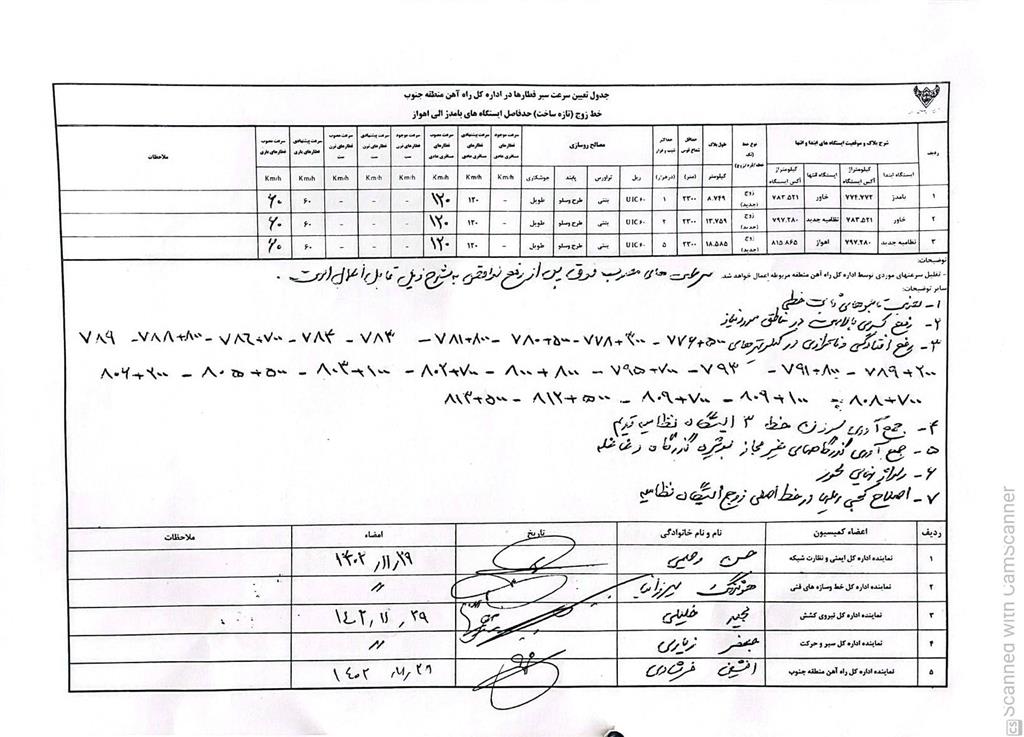 جدول تعیین سرعت سیر قطارها در اداره کل راه آهن منطقه جنوب
خط زوج (تازه ساخت) حدفاصل ایستگاه های بامدژ الی اهواز
ردیف
شرح بلاک و موقعیت ایستگاه های ابتدا و انتها
ایستگاه ابتدا
کیلومتراژ آکس ایستگاه
ایستگاه انتها
کیلومتراژ آکس ایستگاه
نوع خط
طول بلاک
کیلومتر
حداقل شعاع قوس
(متر)
حداکثر شیب و فراز
(درهزار)
مصالح روسازی
ریل
تراورس
پابند
جوشکاری
سرعت موجود قطارهای مسافری عادی
سرعت پیشنهادی قطارهای مسافری عادی
سرعت مصوب قطارهای مسافری عادی
سرعت موجود قطارهای ترن ست
سرعت پیشنهادی قطارهای ترن ست
سرعت مصوب قطارهای ترن ست
سرعت پیشنهادی قطارهای باری
سرعت مصوب قطارهای باری
ملاحظات
Km/h Km/h Km/h Km/h Km/h Km/h Km/h Km/h
۱ بامدژ ۷۷۴.۷۷۲ خاور ۷۸۳.۵۲۱ زوج (جدید) ۸.۷۴۹ ۲۳۰۰ ۱ UIC۶۰ بتنی طرح وسلو طویل - ۱۲۰ ۱۲۰ - - - ۶۰ ۶۰
۲ خاور ۷۸۳.۵۲۱ نظامیه جدید ۷۹۷.۲۸۰ زوج (جدید) ۱۳.۷۵۹ ۲۳۰۰ ۲ UIC۶۰ بتنی طرح وسلو طویل - ۱۲۰ ۱۲۰ - - - ۶۰ ۶۰
۳ نظامیه جدید ۷۹۷.۲۸۰ اهواز ۸۱۵.۸۶۵ زوج (جدید) ۱۸.۵۸۵ ۲۳۰۰ ۵ UIC۶۰ بتنی طرح وسلو طویل - ۱۲۰ ۱۲۰ - - - ۶۰ ۶۰
توضیحات:
- تقلیل سرعتهای موردی توسط اداره کل راه آهن منطقه مربوطه اعمال خواهد شد. سرعت های مصوب فوق پس از رفع نواقص به شرح ذیل قابل اعمال است.
سایر توضیحات:
۱- نصب تابلوهای خطی
۲- رفع کسری بالاست در مناطق مورد نیاز
۳- رفع افتادگی و ناترازی در کیلومترهای ۷۷۶+۵۰۰ - ۷۷۸+۳۰۰ - ۷۸۰+۵۰۰ - ۷۸۱+۸۰۰ - ۷۸۳ - ۷۸۴ - ۷۸۶+۷۰۰ - ۷۸۸+۸۰۰ - ۷۸۹
۷۸۹+۲۰۰ - ۷۹۱+۸۰۰ - ۷۹۳ - ۷۹۵+۷۰۰ - ۸۰۰+۸۰۰ - ۸۰۲+۷۰۰ - ۸۰۳+۱۰۰ - ۸۰۵+۵۰۰ - ۸۰۶+۲۰۰
۸۰۸+۷۰۰ - ۸۰۹+۱۰۰ - ۸۰۹+۷۰۰ - ۸۱۲+۵۰۰ - ۸۱۳+۵۰۰
۴- جمع آوری سوزن خط ۳ ایستگاه نظامیه قدیم
۵- جمع آوری گذرگاههای غیر مجاز گذرگاه دغاغله
۶- محور
۷- اصلاح ریلها در خط اصلی زوج ایستگاه نظامیه
ردیف اعضاء کمیسیون نام و نام خانوادگی تاریخ امضاء ملاحظات
۱ نماینده اداره کل ایمنی و نظارت شبکه حسن ۱۴۰۲
۲ نماینده اداره کل خط وسازه های فنی هوشنگ میرزانیا "
۳ نماینده اداره کل نیروی کشش مجید خلیلی ۱۴۰۲
۴ نماینده اداره کل سیر و حرکت جعفر زیاری "
۵ نماینده اداره کل راه آهن منطقه جنوب افشین فرشادی ۱۴۰۲
CS Scanned with CamScanner